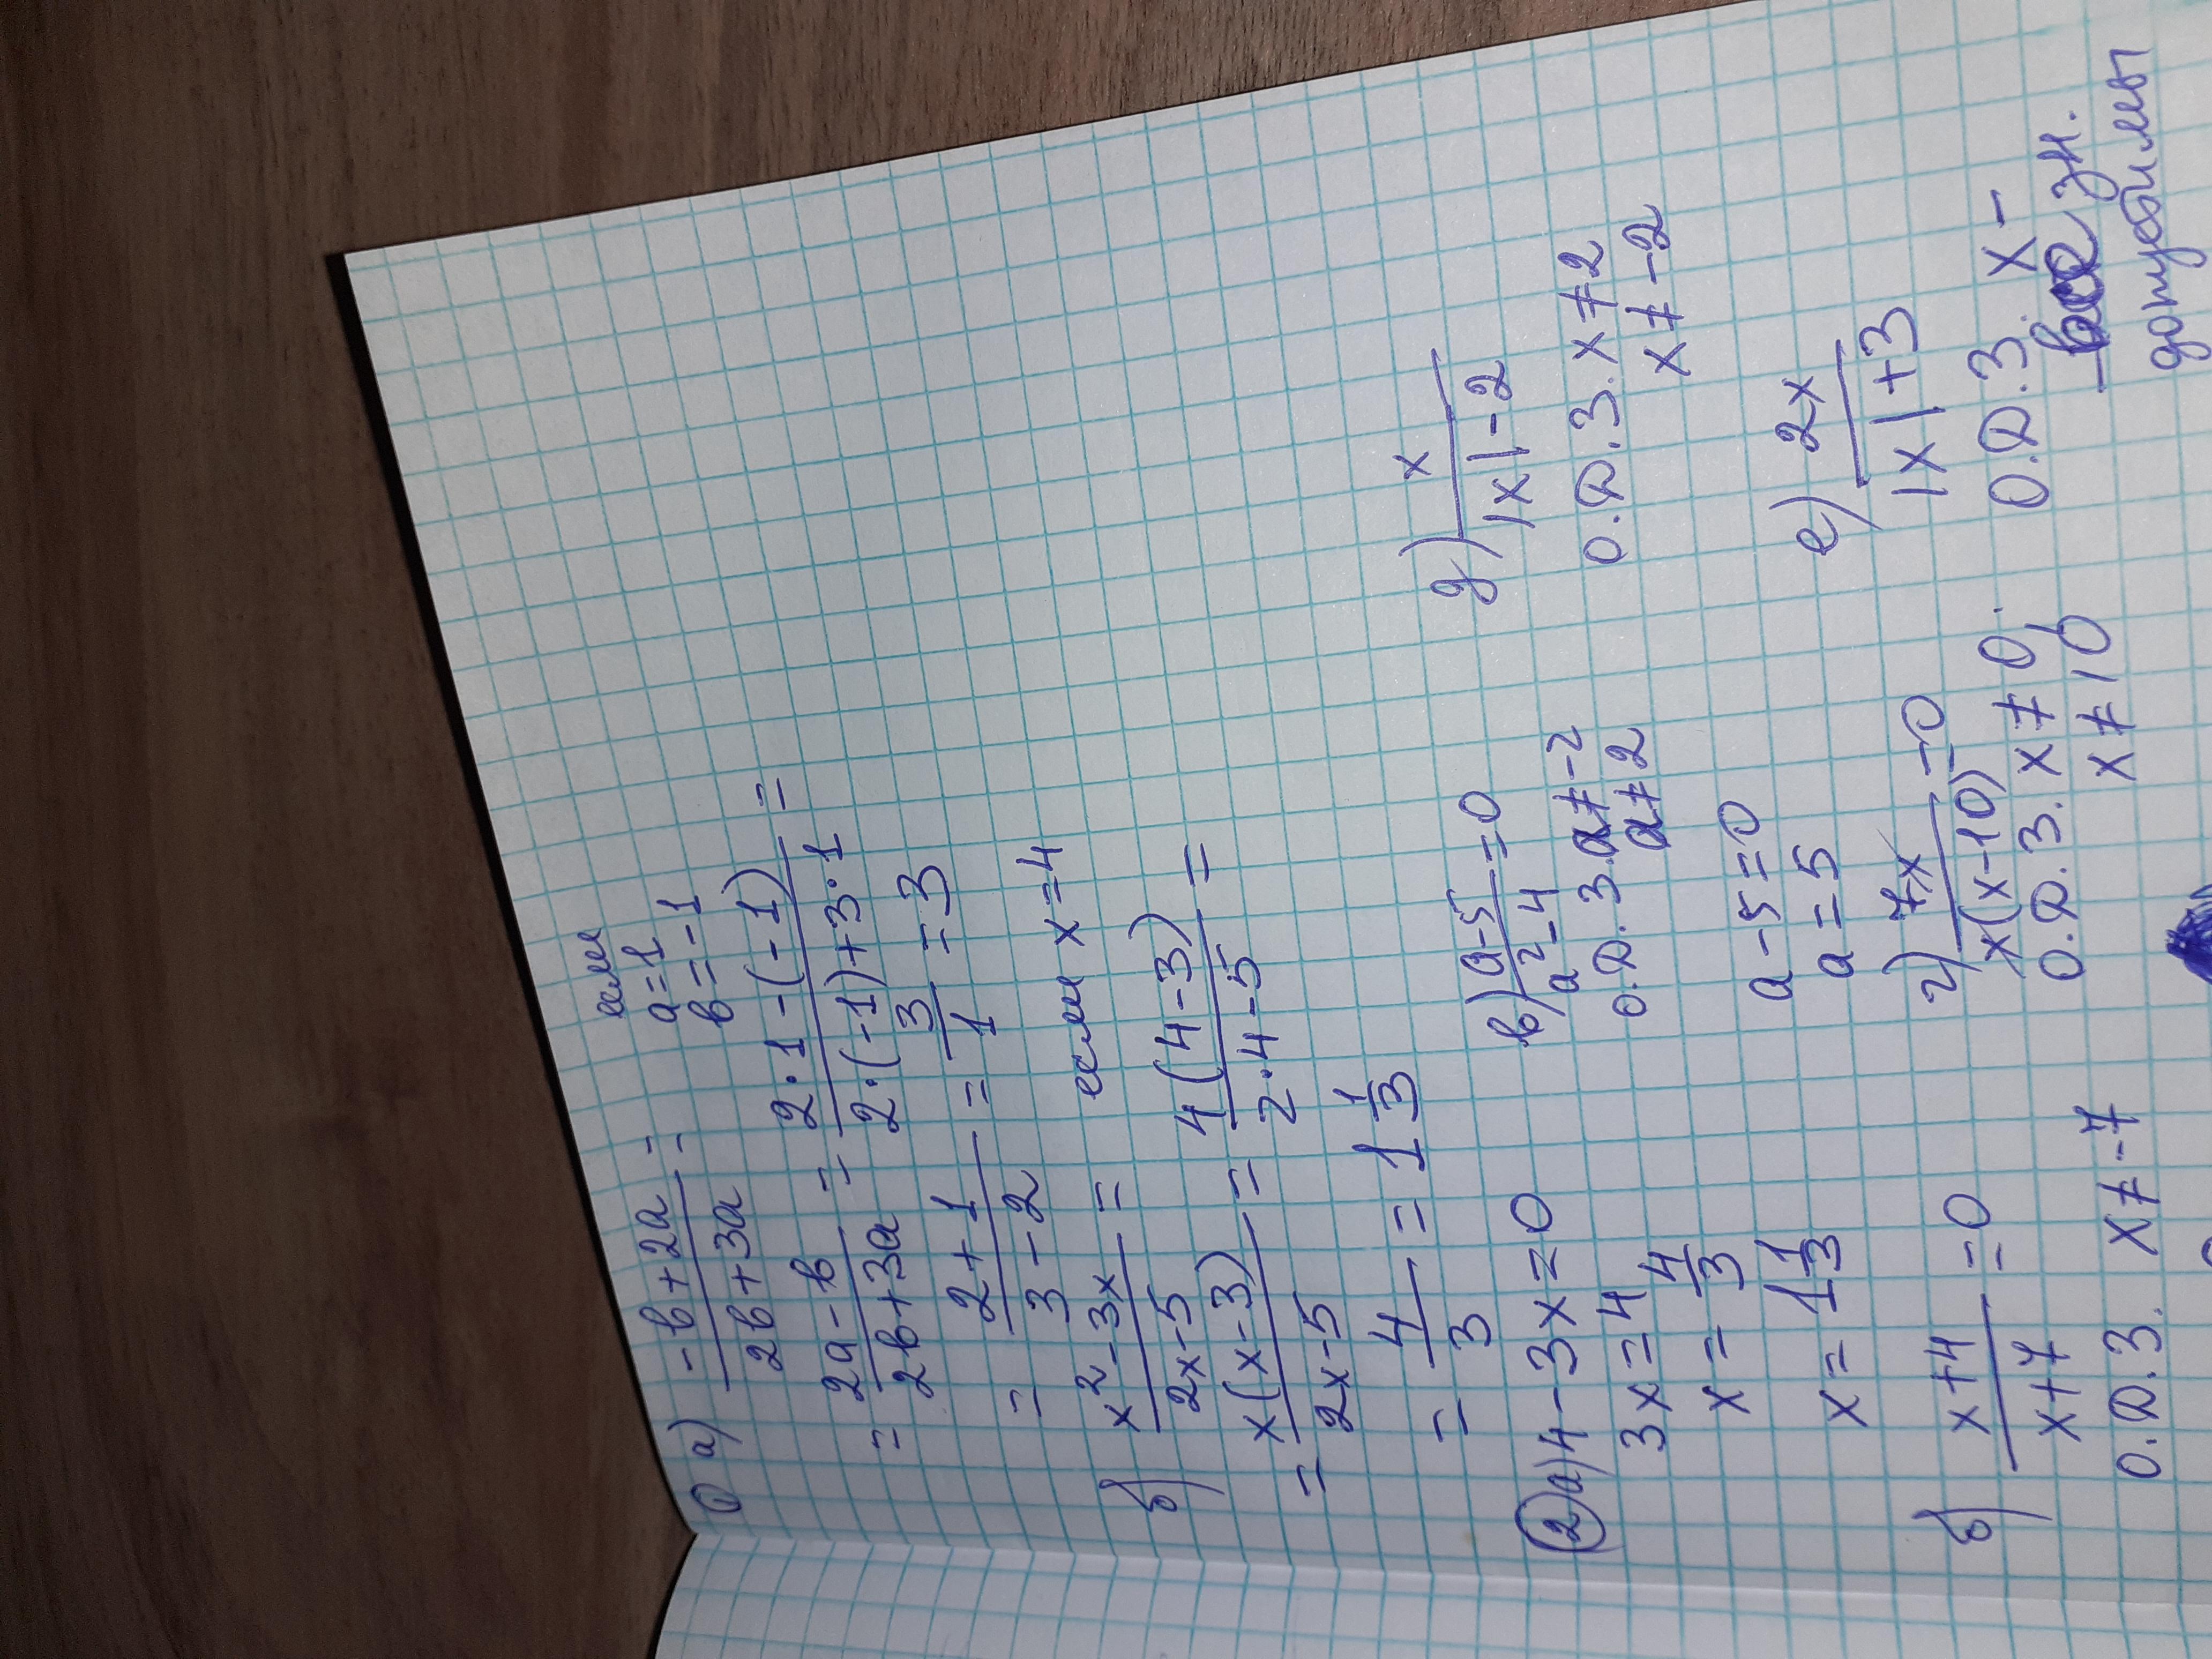 ① а) -b+2a / 2b+3a = если a=1 b=-1
= 2a-b / 2b+3a = 2·1-(-1) / 2·(-1)+3·1 =
= 2+1 / 3-2 = 3/1 = 3
б) x²-3x / 2x-5 = если x=4
= x(x-3) / 2x-5 = 4(4-3) / 2·4-5 =
= 4/3 = 1 1/3
② а) 4-3x=0
3x=4
x= 4/3
x= 1 1/3
б) x+4 / x+7 =0
О.D.З. x≠-7
в) a-5 / a²-4 =0
О.D.З. a≠-2
a≠2
a-5=0
a=5
г) 7x / x(x-10) =0
О.D.З. x≠0
x≠10
д) x / |x|-2
О.D.З. x≠2
x≠-2
е) 2x / |x|+3
О.D.З. x-
- все зн.
допустимы